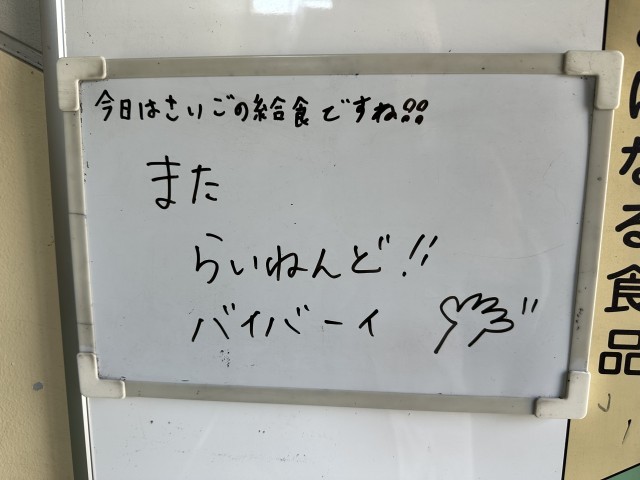 今日はさいごの給食ですね!!
また
らいねんど!!
バイバーイ
なる食品